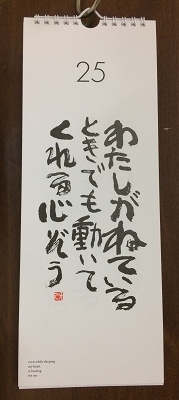 25
わたしがねている
ときでも動いて
くれる心ぞう
even while sleeping
my heart
is beating
for me